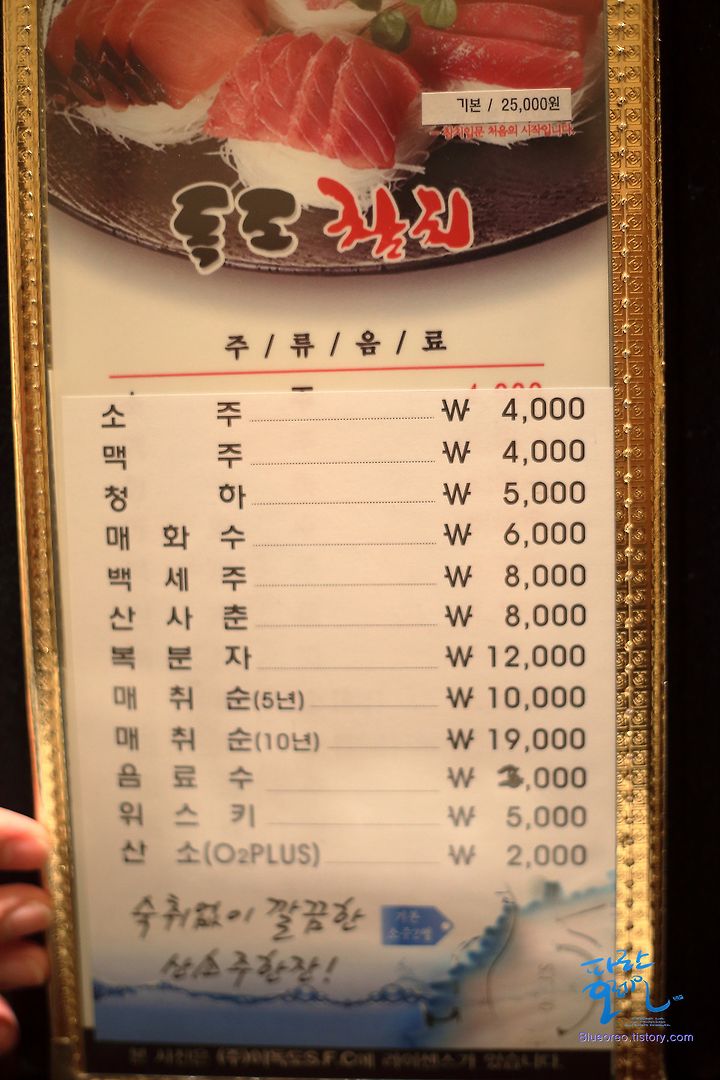 기본 / 25,000원
참치입문 처음의 시작입니다.
독도 참치
주 / 류 / 음 / 료
소 주 ₩ 4,000
맥 주 ₩ 4,000
청 하 ₩ 5,000
매 화 수 ₩ 6,000
백 세 주 ₩ 8,000
산 사 춘 ₩ 8,000
복 분 자 ₩ 12,000
매 취 순(5년) ₩ 10,000
매 취 순(10년) ₩ 19,000
음 료 수 ₩ ,000
위 스 키 ₩ 5,000
산 소(O2PLUS) ₩ 2,000
숙취없이 깔끔한
기본
산소주한잔!
파란
Blueoreo.tistory.com
본 사진은 (주)이독도S.F.C에 라이센스가 있습니다.